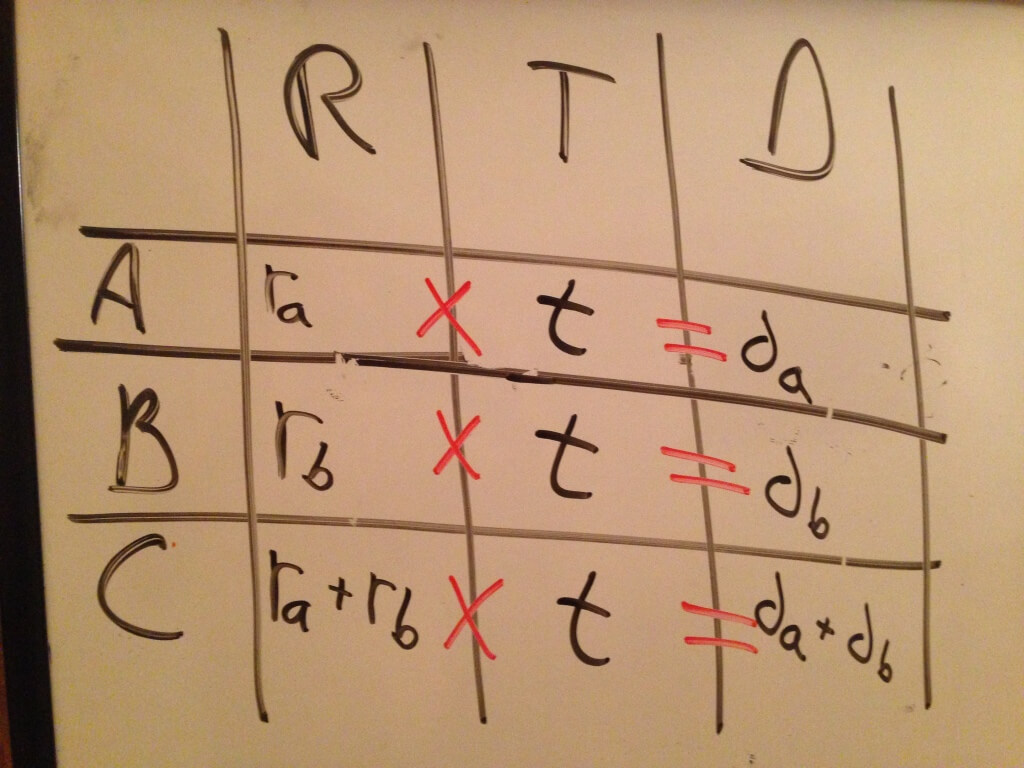 R T D
A r_a × t = d_a
B r_b × t = d_b
C r_a + r_b × t = d_a + d_b